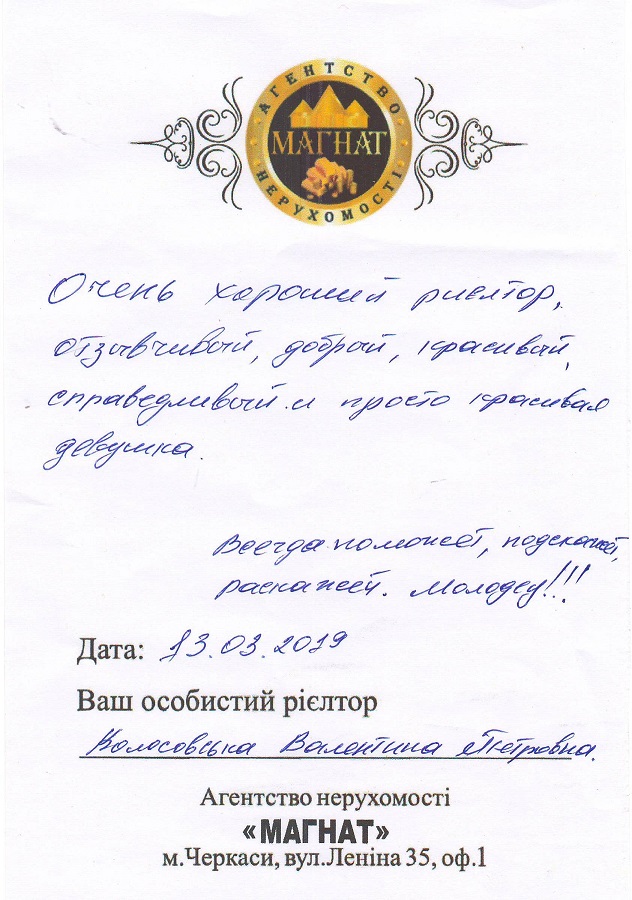 АГЕНТСТВО
МАГНАТ
НЕРУХОМОСТІ
Очень хороший риєлтор,
отзывчивый, добрый, красивый,
справедливый и просто красивая
девушка.
Всегда поможет, подскажет,
раскажет. Молодец!!!
Дата: 13.03.2019
Ваш особистий рієлтор
Колосовська Валентина Петровна.
Агентство нерухомості
«МАГНАТ»
м.Черкаси, вул.Леніна 35, оф.1